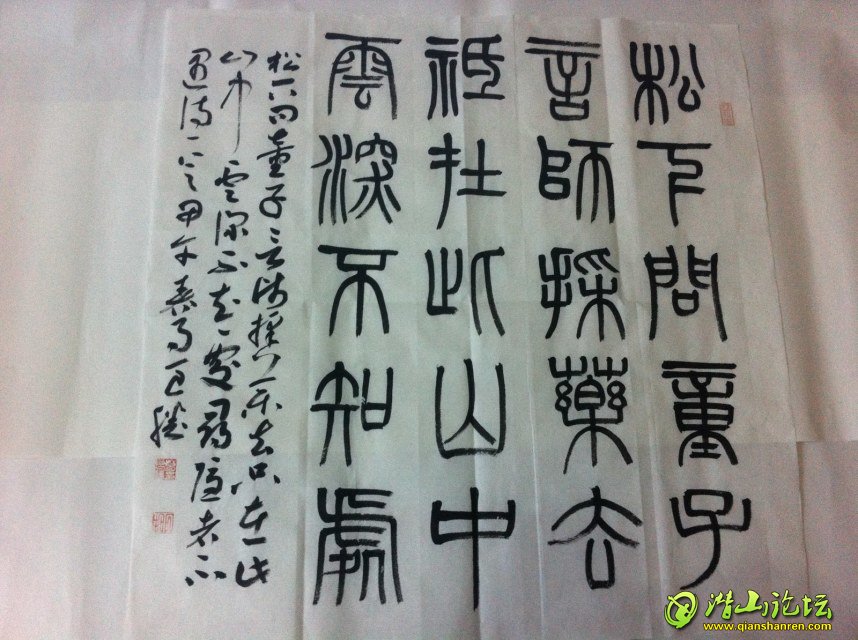 松下問童子
言師採藥去
祗在此山中
雲深不知處
松下問童子言師採藥去只在此
山中雲深不知處尋隱者不
遇詩一首甲午春月
潜山论坛
www.qianshanren.com